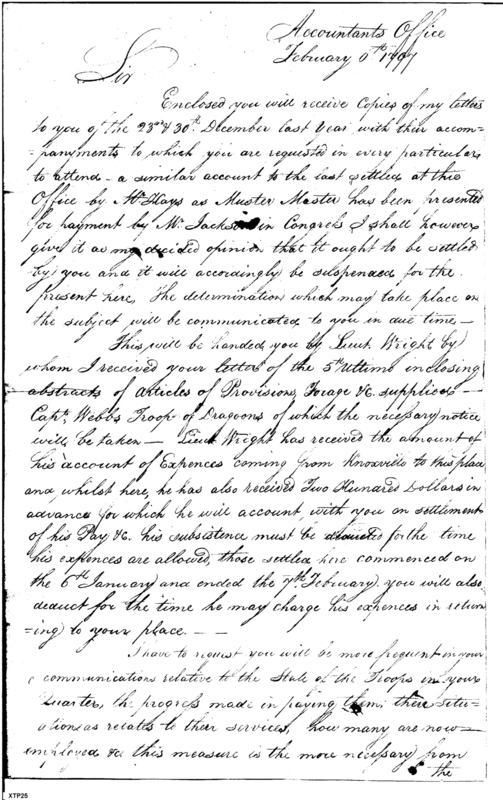 Accountants Office
February 8th 1797
Sir
Enclosed you will receive Copies of my letters
to you of the 23rd & 30th December last Year with their accom-
-panyments to which you are requested in every particular
to attend - a similar account to the last settled at this
Office by Mr Hays as Muster Master has been presented
for payment by Mr Jackson in Congress I shall however
give it as my decided opinion that it ought to be settled
by you and it will accordingly be suspended for the
present here, The determination which may take place on
the subject will be communicated to you in due time —
This will be handed you by Lieut Wright by
whom I received your letter of the 5th Ultimo inclosing
abstracts of Articles of Provisions, Forage &c. supplied —
Capt. Webbs Troop of Dragoons of which the necessary notice
will be taken — Lieut Wright has received the amount of
his account of Expences coming from Knoxville to this place
and whilst here, he has also received Two Hundred Dollars in
advance for which he will account, with you on settlement
of his Pay &c. his subsistence must be deducted for the time
his expences are allowed, those settled here commenced on
the 6th January and ended the 7th February, you will also
deduct for the time he may charge his expences in return
=ing to your place. — —
I have to request you will be more frequent in your
communications relative to the State of the Troops in your
Quarter, the progress made in paying them their situ-
ation as relates to their services, how many are now —
employed &c this measure is the more necessary from
the
XTP25